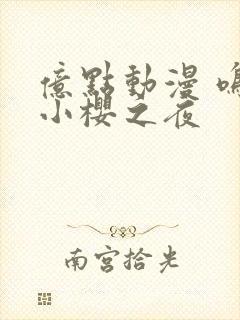 億點動漫 鳴
小櫻之夜
南宮拾光